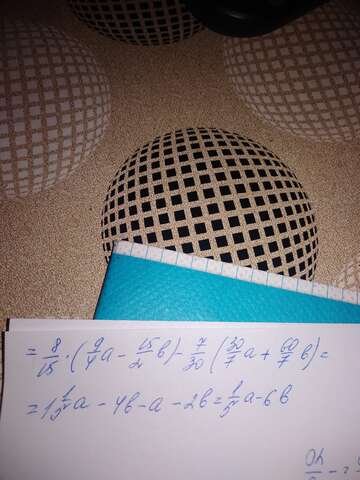 = 8/15 · (9/4 a - 15/2 b) - 7/30 (30/7 a + 60/7 b) =
= 1 1/5 a - 4b - a - 2b = 1/5 a - 6b